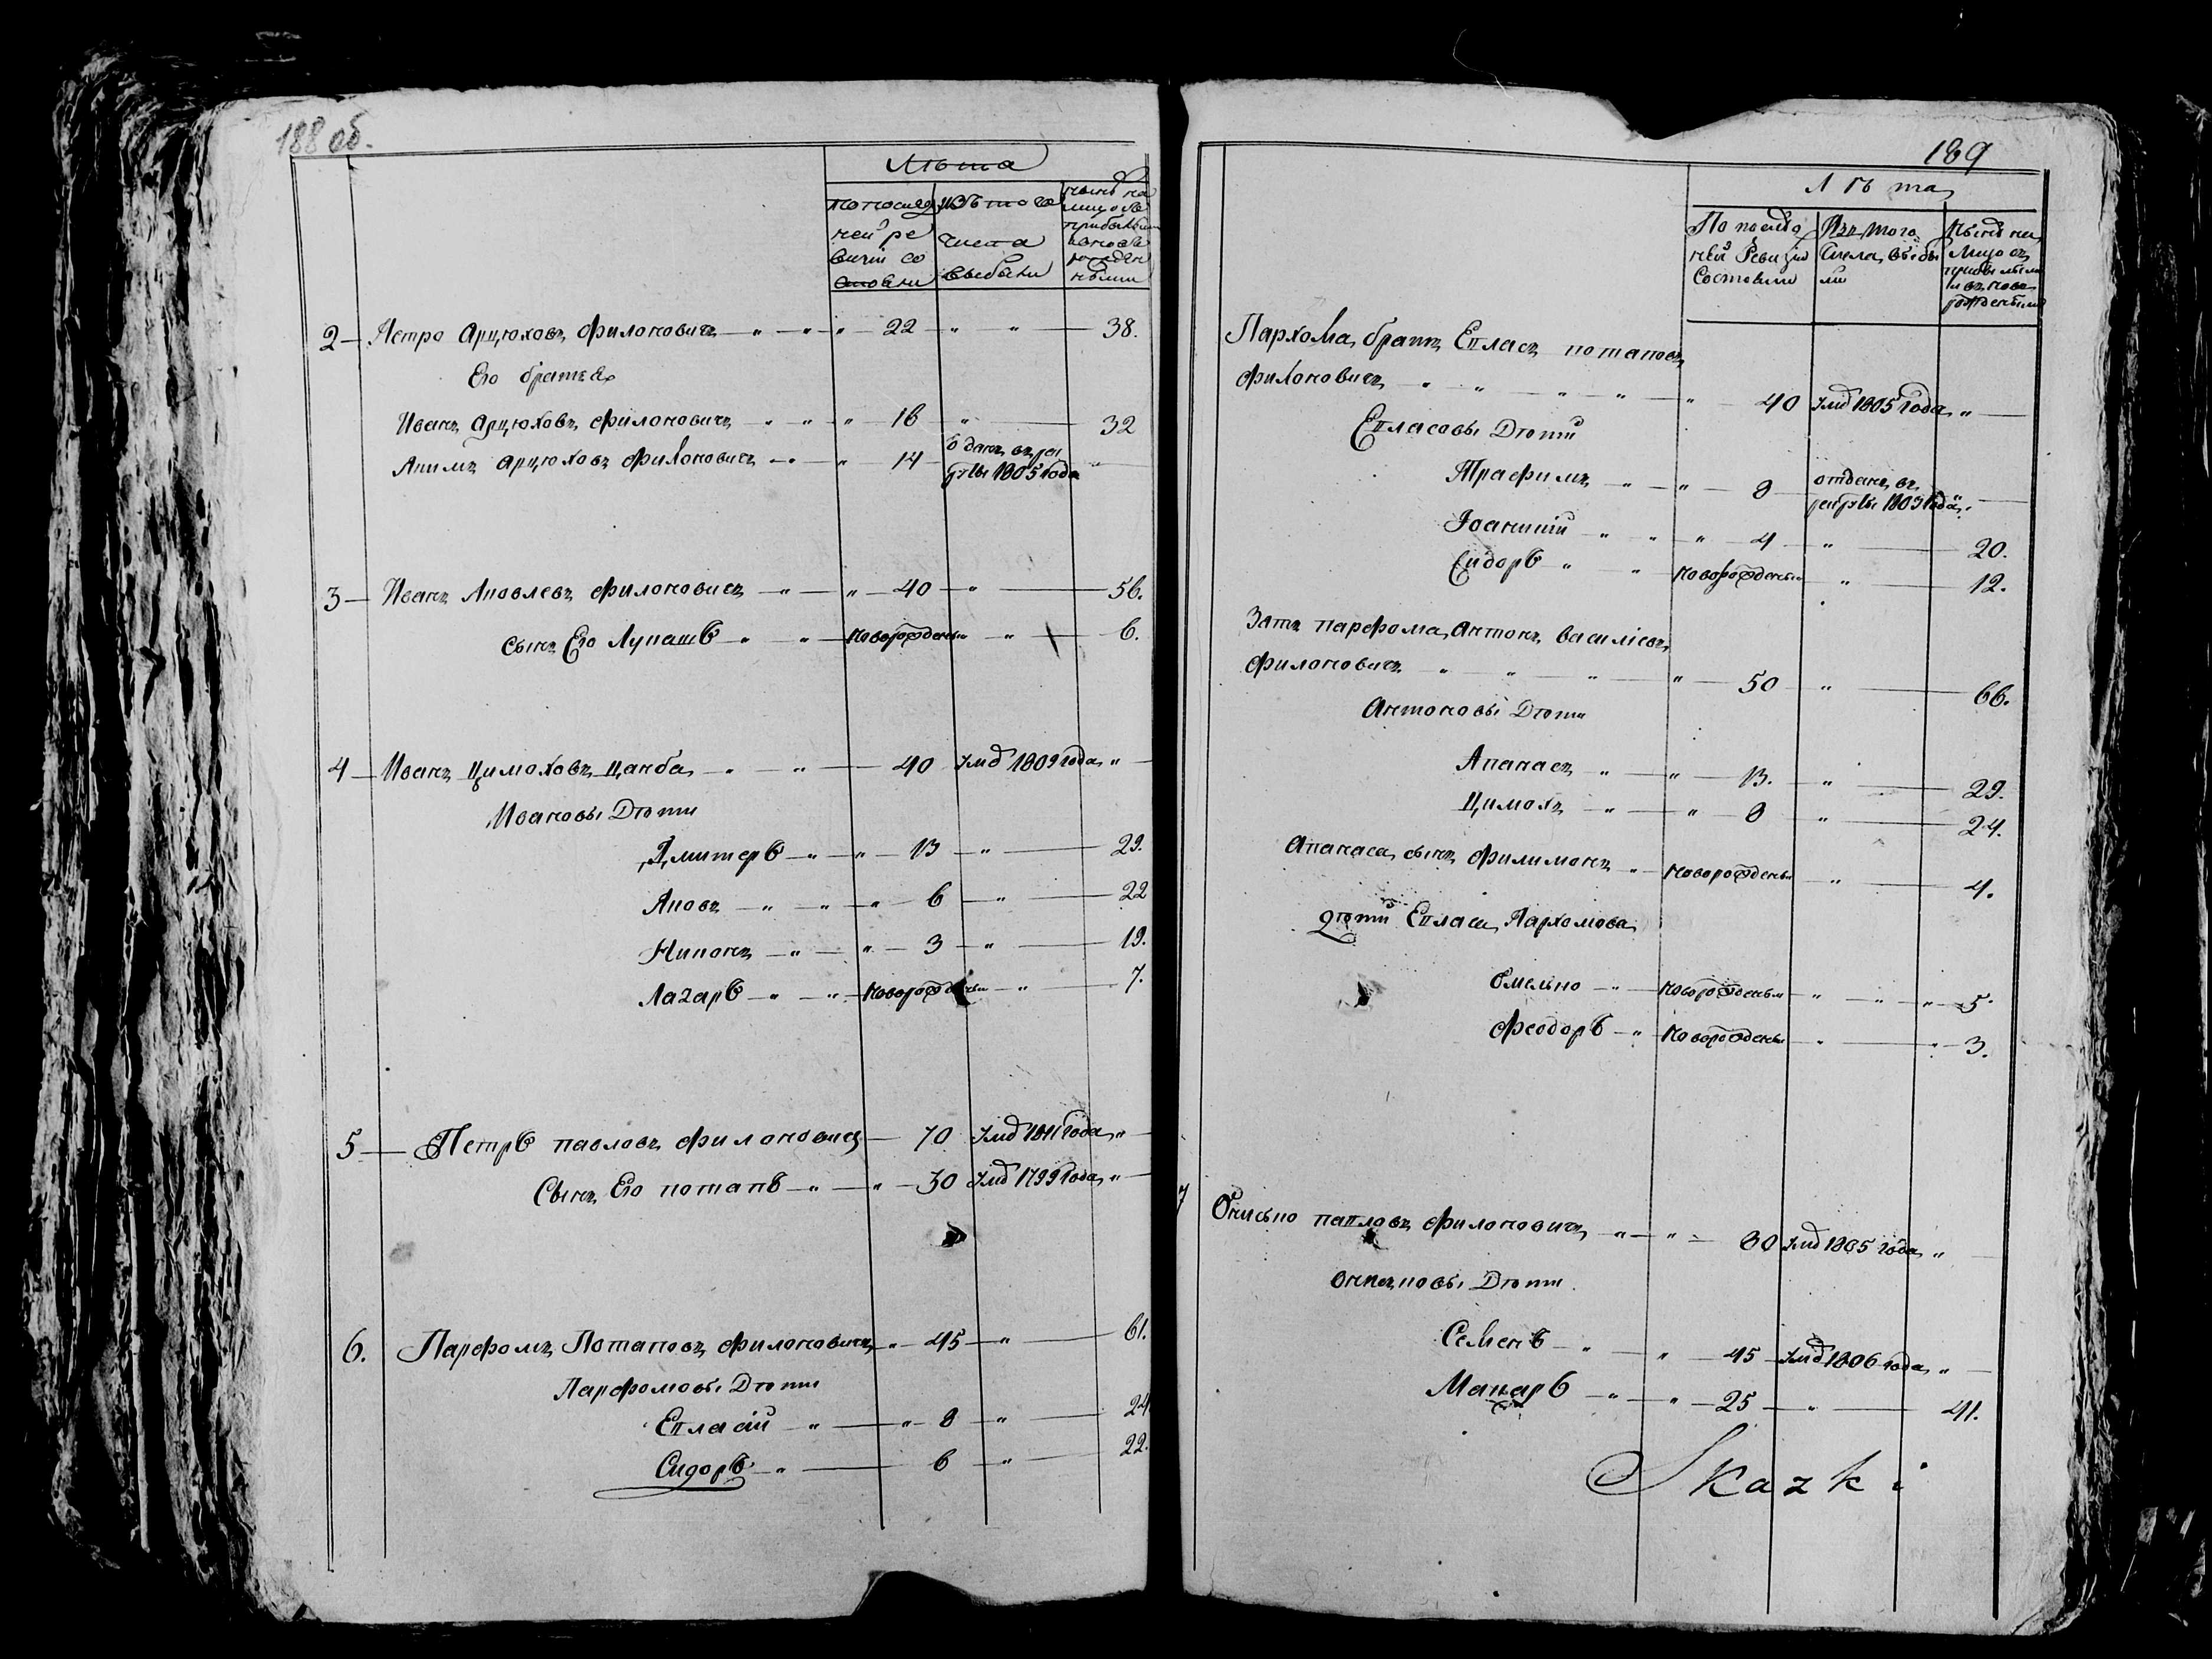 188 об.
Лѣта
по послѣд
ней ре
визіи со
стояли
изъ того
числа
выбыли
нынѣ на
лицо съ
прибылыми
и вновь
рожден
ными
2 — Петро Арцюховъ филоновичъ " 22 " " 38.
Его братья
Иванъ Арцюховъ филоновичъ " " " 16 " 32
Акимъ Арцюховъ филоновичъ " " 14 Отданъ въ ре
круты 1805 года "
3 — Иванъ Яковлевъ филоновичъ " " 40 " 56.
сынъ Его Лукашъ " " новорожденны " 6.
4 — Иванъ Цимоховъ Цанба " " 40 Умр 1809 года "
Ивановы Дѣти
Дмитеръ " " 13 " 29.
Яковъ " " " 6 " 22
Никонъ " " 3 " 19.
Лазаръ " " новорожденны " 7.
5 — Петръ павловъ филоновичъ 70 Умр 1811 года "
Сынъ Его потапъ " " 30 Умр 1799 года "
6. Парфомъ Потаповъ филоновичъ " 45 " 61.
Парфомовы Дѣти
Евласій " " 8 " 24
Сидоръ " 6 " 22.
189
Лѣта
По послѣд
ней Ревизіи
Состояли
Изъ того
Числа выбы
ли
Нынѣ на
Лицо съ
прибылыми
и вновь
рожденными
Пархома братъ Евласъ потаповъ
филоновичъ " " " " " 40 Умр 1805 года "
Евласовы Дѣти
Трафимъ " " 8 отданъ въ
рекруты 1805 года "
Іоаникій " " " 4 " 20.
Сидоръ " " новорожденны " 12.
Зять парфома Антонъ Василіевъ
филоновичъ " " " " 50 " 66.
Антоновы Дѣти
Апанасъ " " 13. " 29.
Цимохъ " " 8 " 24.
Апанаса сынъ филимонъ " новорожденны " 4.
Дѣти Евласа Пархомова
Омельно " новорожденны " " " 5.
Феодоръ " новорожденны " " 3.
7 Онисько павловъ филоновичъ " " 80 Умр 1805 года "
Дѣти
Семенъ " " 45 Умр 1806 года "
Макаръ " " 25 " 41.
Skazki